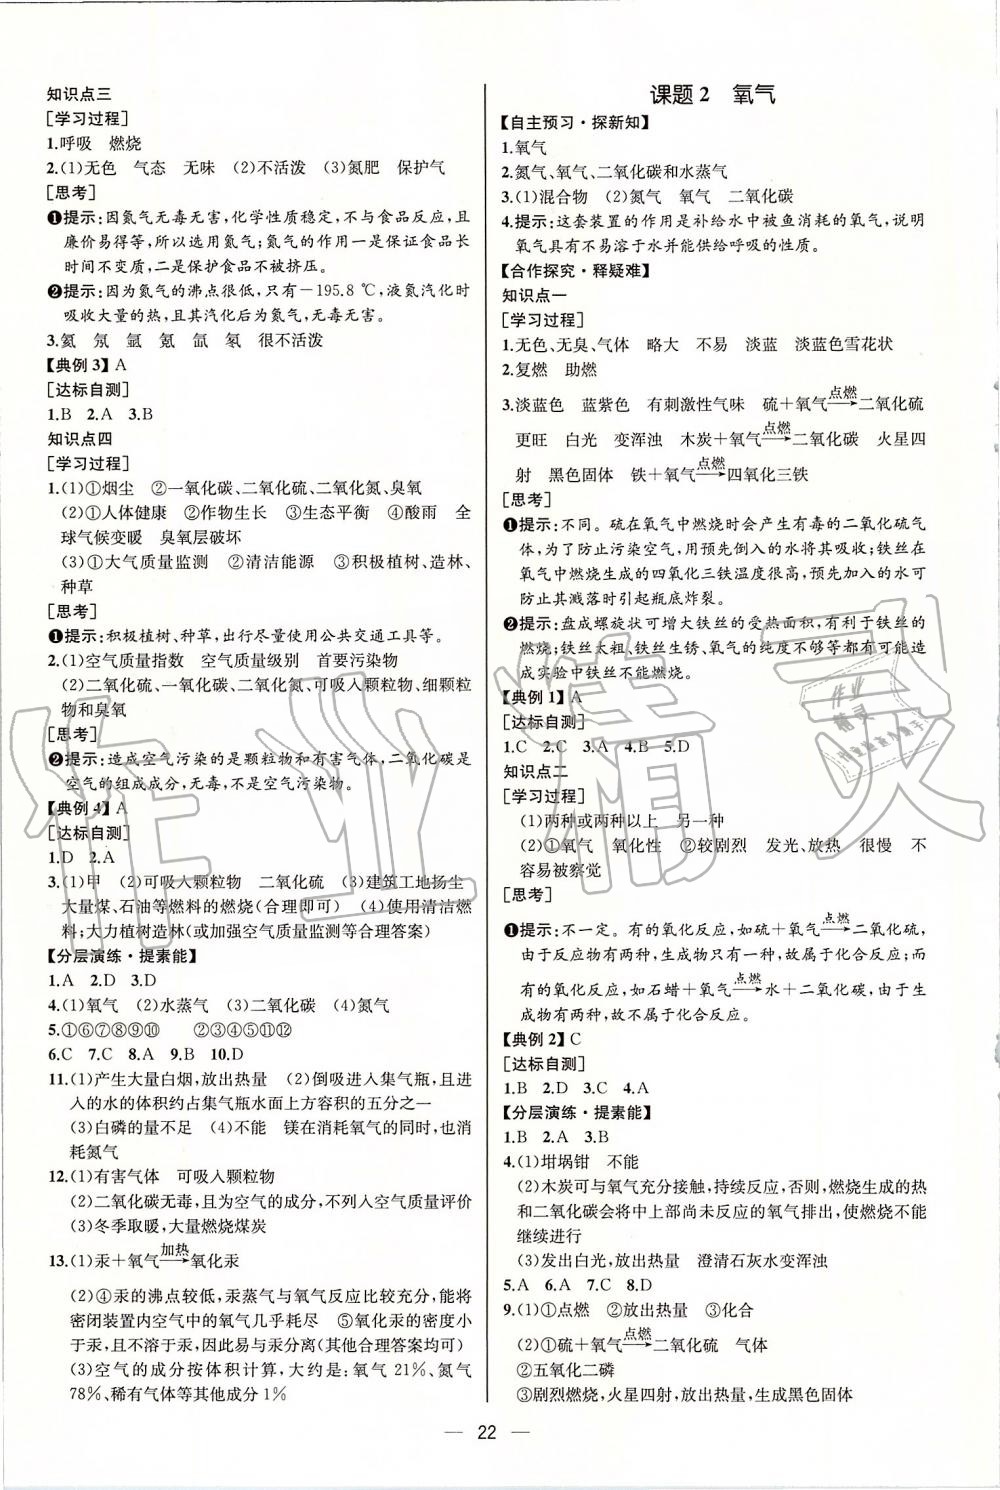 知识点三
[学习过程]
1.呼吸 燃烧
2.(1)无色 气态 无味 (2)不活泼 (3)氮肥 保护气
[思考]
❶提示:因氮气无毒无害,化学性质稳定,不与食品反应,且
廉价易得等,所以选用氮气;氮气的作用一是保证食品长
时间不变质,二是保护食品不被挤压。
❷提示:因为氮气的沸点很低,只有-195.8 ℃,液氮汽化时
吸收大量的热,且其汽化后为氮气,无毒无害。
3.氦 氖 氩 氪 氙 氡 很不活泼
【典例 3】A
[达标自测]
1.B 2.A 3.B
知识点四
[学习过程]
1.(1)①烟尘 ②一氧化碳、二氧化硫、二氧化氮、臭氧
(2)①人体健康 ②作物生长 ③生态平衡 ④酸雨 全
球气候变暖 臭氧层破坏
(3)①大气质量监测 ②清洁能源 ③积极植树、造林、
种草
[思考]
❶提示:积极植树、种草,出行尽量使用公共交通工具等。
2.(1)空气质量指数 空气质量级别 首要污染物
(2)二氧化硫、一氧化碳、二氧化氮、可吸入颗粒物、细颗粒
物和臭氧
[思考]
❷提示:造成空气污染的是颗粒物和有害气体,二氧化碳是
空气的组成成分,无毒,不是空气污染物。
【典例 4】A
[达标自测]
1.D 2.A
3.(1)甲 (2)可吸入颗粒物 二氧化硫 (3)建筑工地扬尘
大量煤、石油等燃料的燃烧(合理即可) (4)使用清洁燃
料;大力植树造林(或加强空气质量监测等合理答案)
【分层演练·提素能】
1.A 2.D 3.D
4.(1)氧气 (2)水蒸气 (3)二氧化碳 (4)氮气
5.①⑥⑦⑧⑨⑩ ②③④⑤⑪⑫
6.C 7.C 8.A 9.B 10.D
11.(1)产生大量白烟,放出热量 (2)倒吸进入集气瓶,且进
入的水的体积约占集气瓶水面上方容积的五分之一
(3)白磷的量不足 (4)不能 镁在消耗氧气的同时,也消
耗氮气
12.(1)有害气体 可吸入颗粒物
(2)二氧化碳无毒,且为空气的成分,不列入空气质量评价
(3)冬季取暖,大量燃烧煤炭
13.(1)汞+氧气 加热→ 氧化汞
(2)④汞的沸点较低,汞蒸气与氧气反应比较充分,能将
密闭装置内空气中的氧气几乎耗尽 ⑤氧化汞的密度小
于汞,且不溶于汞,因此易与汞分离(其他合理答案均可)
(3)空气的成分按体积计算,大约是:氧气 21%、氮气
78%、稀有气体等其他成分 1%
课题 2 氧气
【自主预习·探新知】
1.氧气
2.氮气、氧气、二氧化碳和水蒸气
3.(1)混合物 (2)氮气 氧气 二氧化碳
4.提示:这套装置的作用是补给水中被鱼消耗的氧气,说明
氧气具有不易溶于水并能供给呼吸的性质。
【合作探究·释疑难】
知识点一
[学习过程]
1.无色、无臭、气体 略大 不易 淡蓝 淡蓝色雪花状
2.复燃 助燃
3.淡蓝色 蓝紫色 有刺激性气味 硫+氧气 点燃→ 二氧化硫
更旺 白光 变浑浊 木炭+氧气 点燃→ 二氧化碳 火星四
射 黑色固体 铁+氧气 点燃→ 四氧化三铁
[思考]
❶提示:不同。硫在氧气中燃烧时会产生有毒的二氧化硫气
体,为了防止污染空气,用预先倒入的水将其吸收;铁丝在
氧气中燃烧生成的四氧化三铁温度很高,预先加入的水可
防止其溅落时引起瓶底炸裂。
❷提示:盘成螺旋状可增大铁丝的受热面积,有利于铁丝的
燃烧;铁丝太粗、铁丝生锈、氧气的纯度不够等都有可能造
成实验中铁丝不能燃烧。
【典例 1】A
[达标自测]
1.C 2.C 3.A 4.B 5.D
知识点二
[学习过程]
(1)两种或两种以上 另一种
(2)①氧气 氧化性 ②较剧烈 发光、放热 很慢 不
容易被察觉
[思考]
❶提示:不一定。有的氧化反应,如硫+氧气 点燃→ 二氧化硫,
由于反应物有两种,生成物只有一种,故属于化合反应;而
有的氧化反应,如石蜡+氧气 点燃→ 水+二氧化碳,因生成
物有两种,故不属于化合反应。
【典例 2】C
[达标自测]
1.B 2.D 3.C 4.A
【分层演练·提素能】
1.B 2.A 3.B
4.(1)坩埚钳 不能
(2)木炭可与氧气充分接触,持续反应,否则,燃烧生成的热
和二氧化碳会将中上部尚未反应的氧气排出,使燃烧不能
继续进行
(3)发出白光,放出热量 澄清石灰水变浑浊
5.A 6.A 7.C 8.D
9.(1)①点燃 ②放出热量 ③化合
(2)①硫+氧气 点燃→ 二氧化硫 气体
②五氧化二磷
③剧烈燃烧,火星四射,放出热量,生成黑色固体
— 22 —
作业精灵